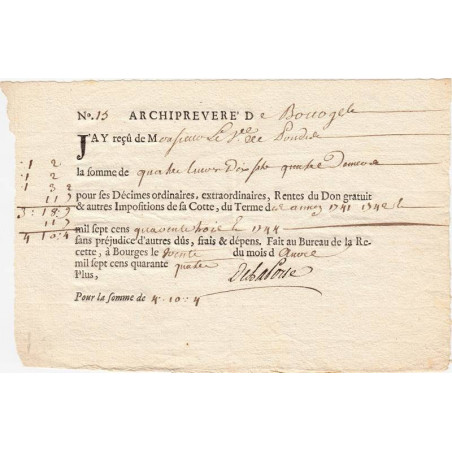 No. 15 ARCHIPREVERÉ De Bourges
J'AY reçû de Monsieur Le V.re de
la somme de quatre livres Dix sols quatre Deniers
1 2
1 2
1 3 2
pour ses Décimes ordinaires, extraordinaires, Rentes du Don gratuit
& autres Impositions de sa Cotte, du Terme des années 1741 1742
3:18:9
mil sept cens quarante trois & 1744
sans préjudice d'autres dûs, frais & dépens. Fait au Bureau de la Re-
4 10:4
cette, à Bourges le trente du mois d'
mil sept cens quarante quatre
Plus,
Pour la somme de 4:10:4